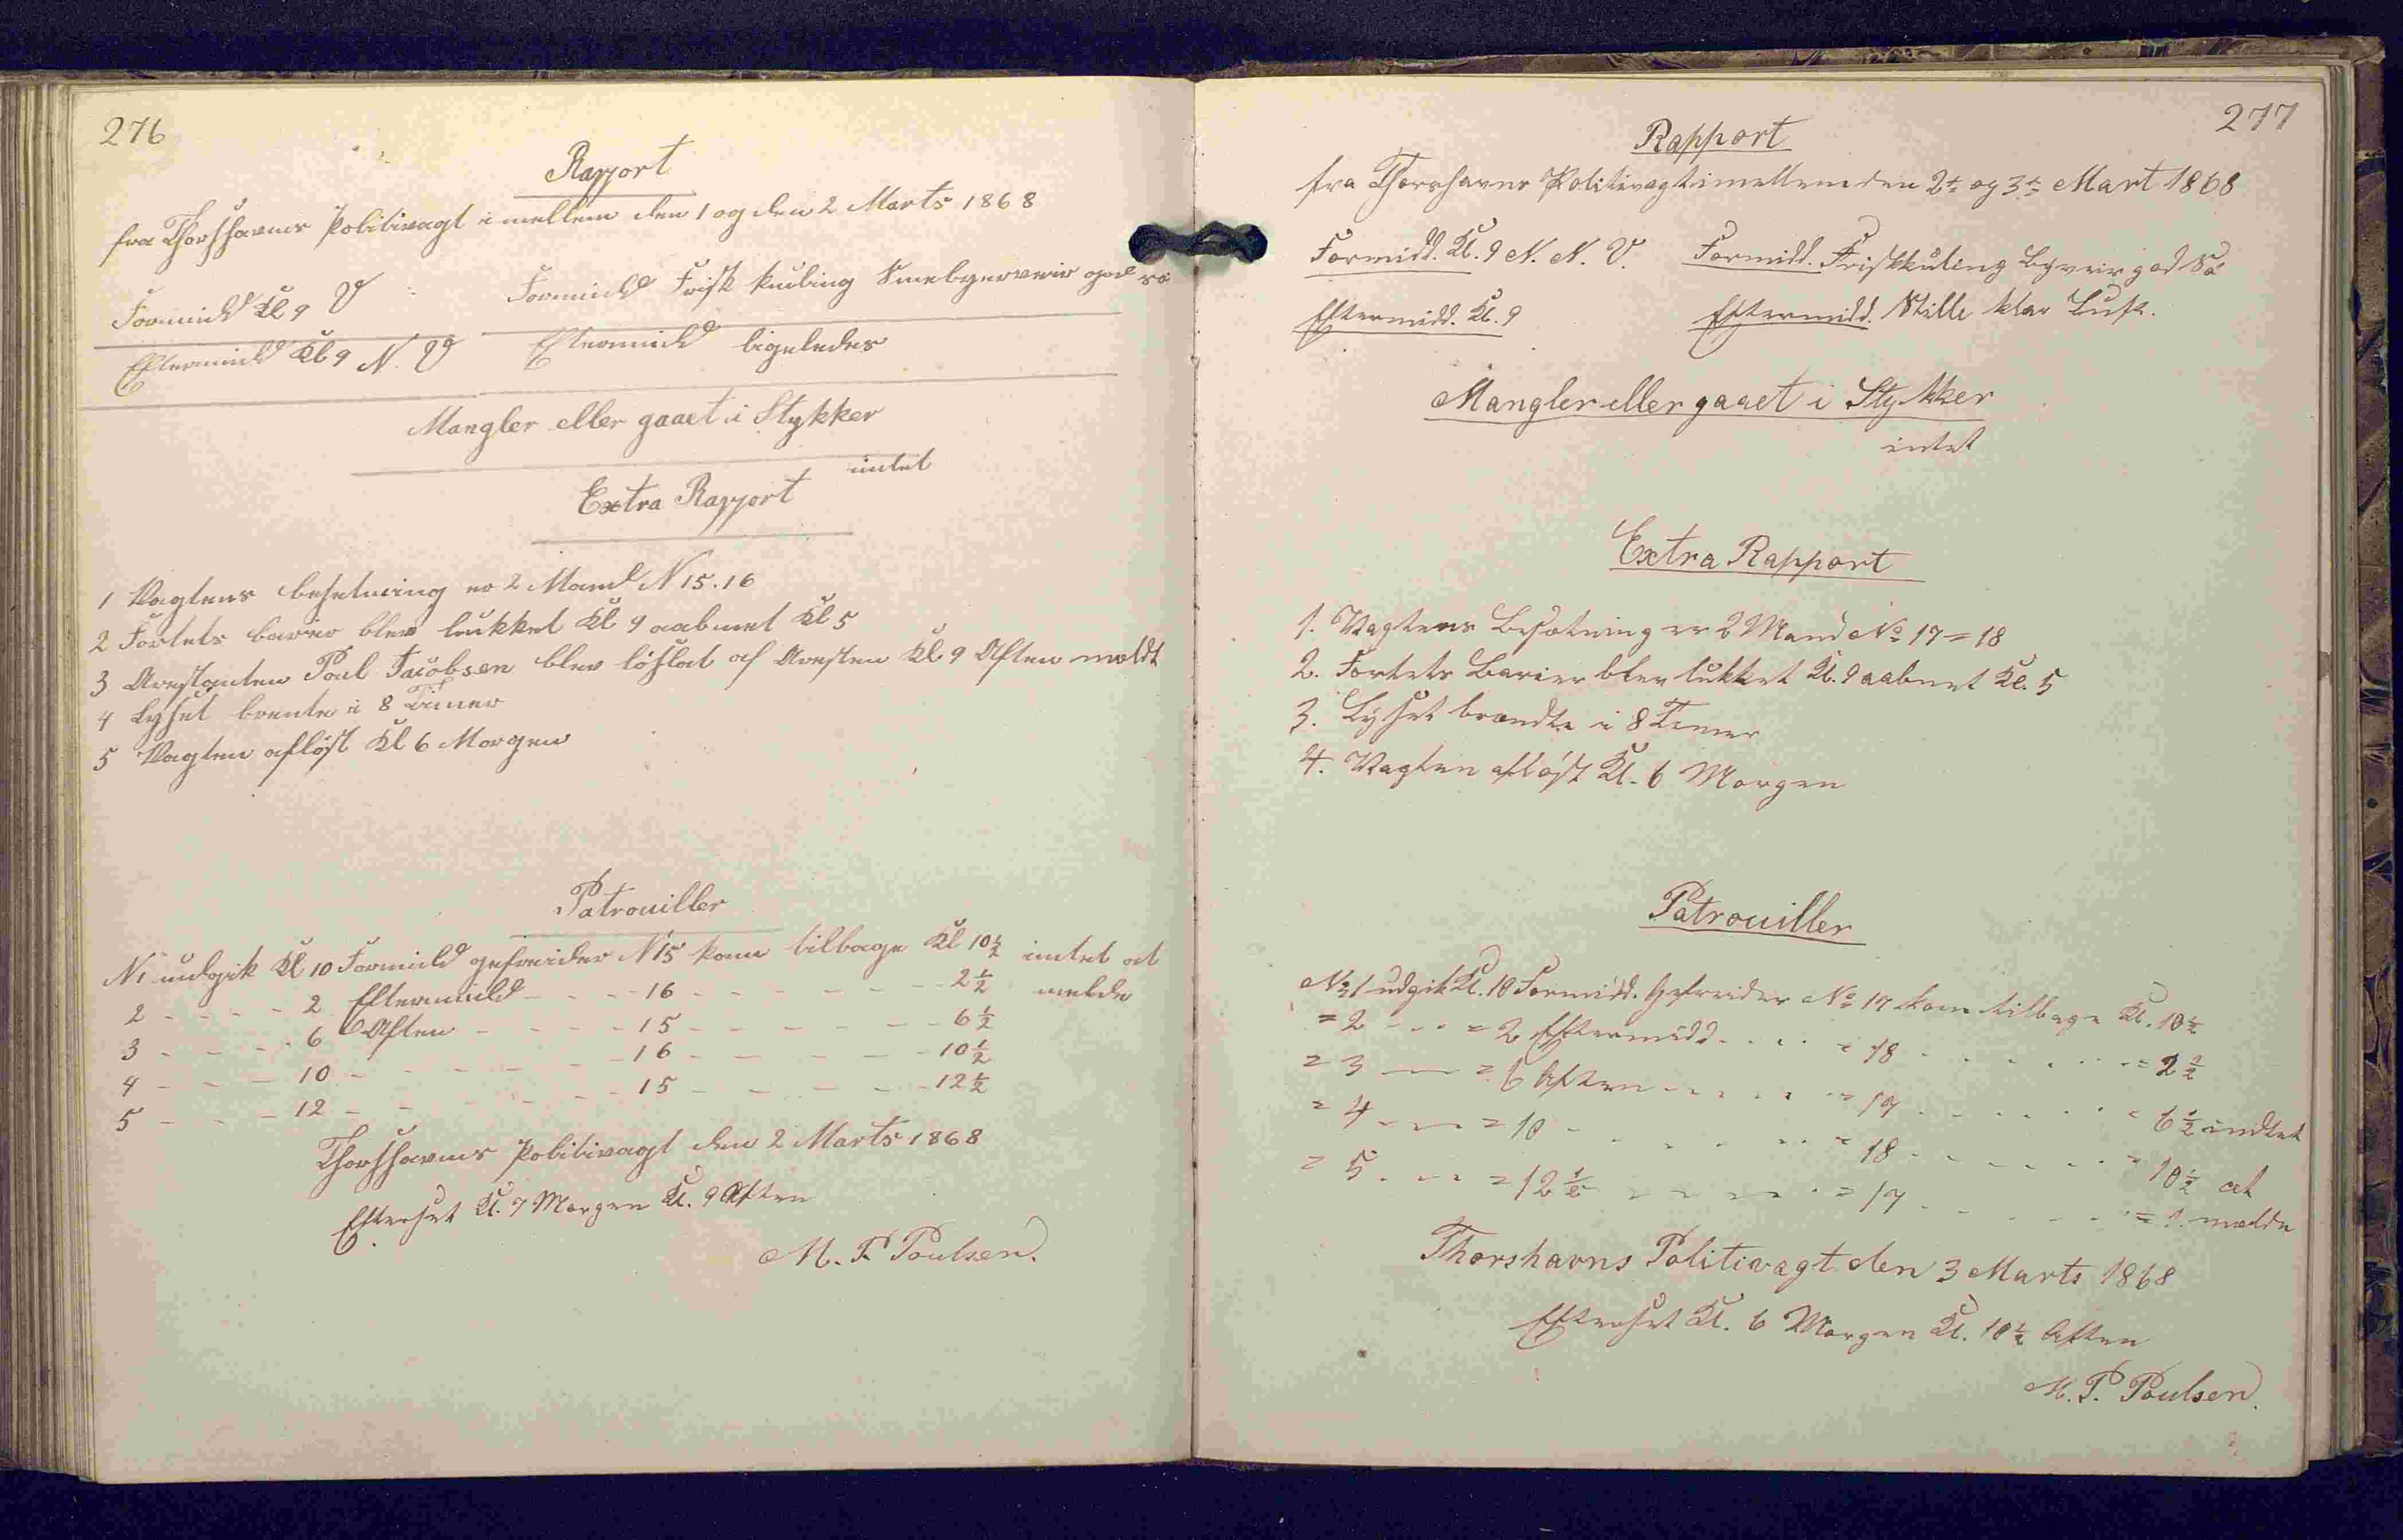 276
Rapport
fra Thorshavns Politivagt imellem den 1 og den 2 Marts 1868
Formidd Kl 9 V Formidd Frisk kuling Smebyerveir god sö
Eftermidd Kl 9 N. V Eftermidd ligeledes
Mangler eller gaaet i Stykker
intet
Extra Rapport
1 Vagtens besetning er 2 Mand N 15. 16
2 Fortets barier blev lukket Kl 9 aabnet Kl 5
3 Arestanten Poul Jacobsen blev löslat af Aresten Kl 9 Aften meldt
4 Lyset brente i 8 Timer
5 Vagten aflöst Kl 6 Morgen
Patrouiller
N 1 udgik Kl 10 Formidd gefreider N 15 kom tilbage Kl 10½ intet at
2 - - - - 2 Eftermidd - - - 16 - - - - - - 2½ melde
3 - - - - 6 Aften - - - - 15 - - - - - - 6½
4 - - - 10 - - - - - - 16 - - - - - 10½
5 - - - 12 - - - - - - 15 - - - - - 12½
Thorshavns Politivagt den 2 Marts 1868
Efterset Kl. 7 Morgen Kl. 9 Aften
M. P. Poulsen.
277
Rapport
fra Thorshavns Politivagt imellem den 2 og 3 Mart 1868
Formidd. Kl. 9 N. N. V. Formidd. Friskkuling Byveir god Sö
Eftermidd. Kl. 9 Eftermidd. Stille klar Luft.
Mangler eller gaaet i Stykker
intet
Extra Rapport
1. Vagtens Besætning er 2 Mand No 17 = 18
2. Fortets Barier blev lukket Kl. 9 aabnet Kl. 5
3. Lyset brændte i 8 Timer
4. Vagten aflöst Kl. 6 Morgen
Patrouiller
No 1 udgik Kl. 10 Formidd. Gefreider No 17 kom tilbage Kl. 10½
= 2 - - - = 2 Eftermidd. - - - = 18 - - - - - = 2½
= 3 - - = 6 Aften - - - - = 17 - - - - - = 6½ indtet
= 4 - - - = 10 - - - - - - = 18 - - - - - = 10½ at
= 5 - - - = 12½ - - - - - = 17 - - - - - = 1. melde
Thorshavns Politivagt den 3 Marts 1868
Efterset Kl. 6 Morgen Kl. 10½ Aften
M. P. Poulsen.